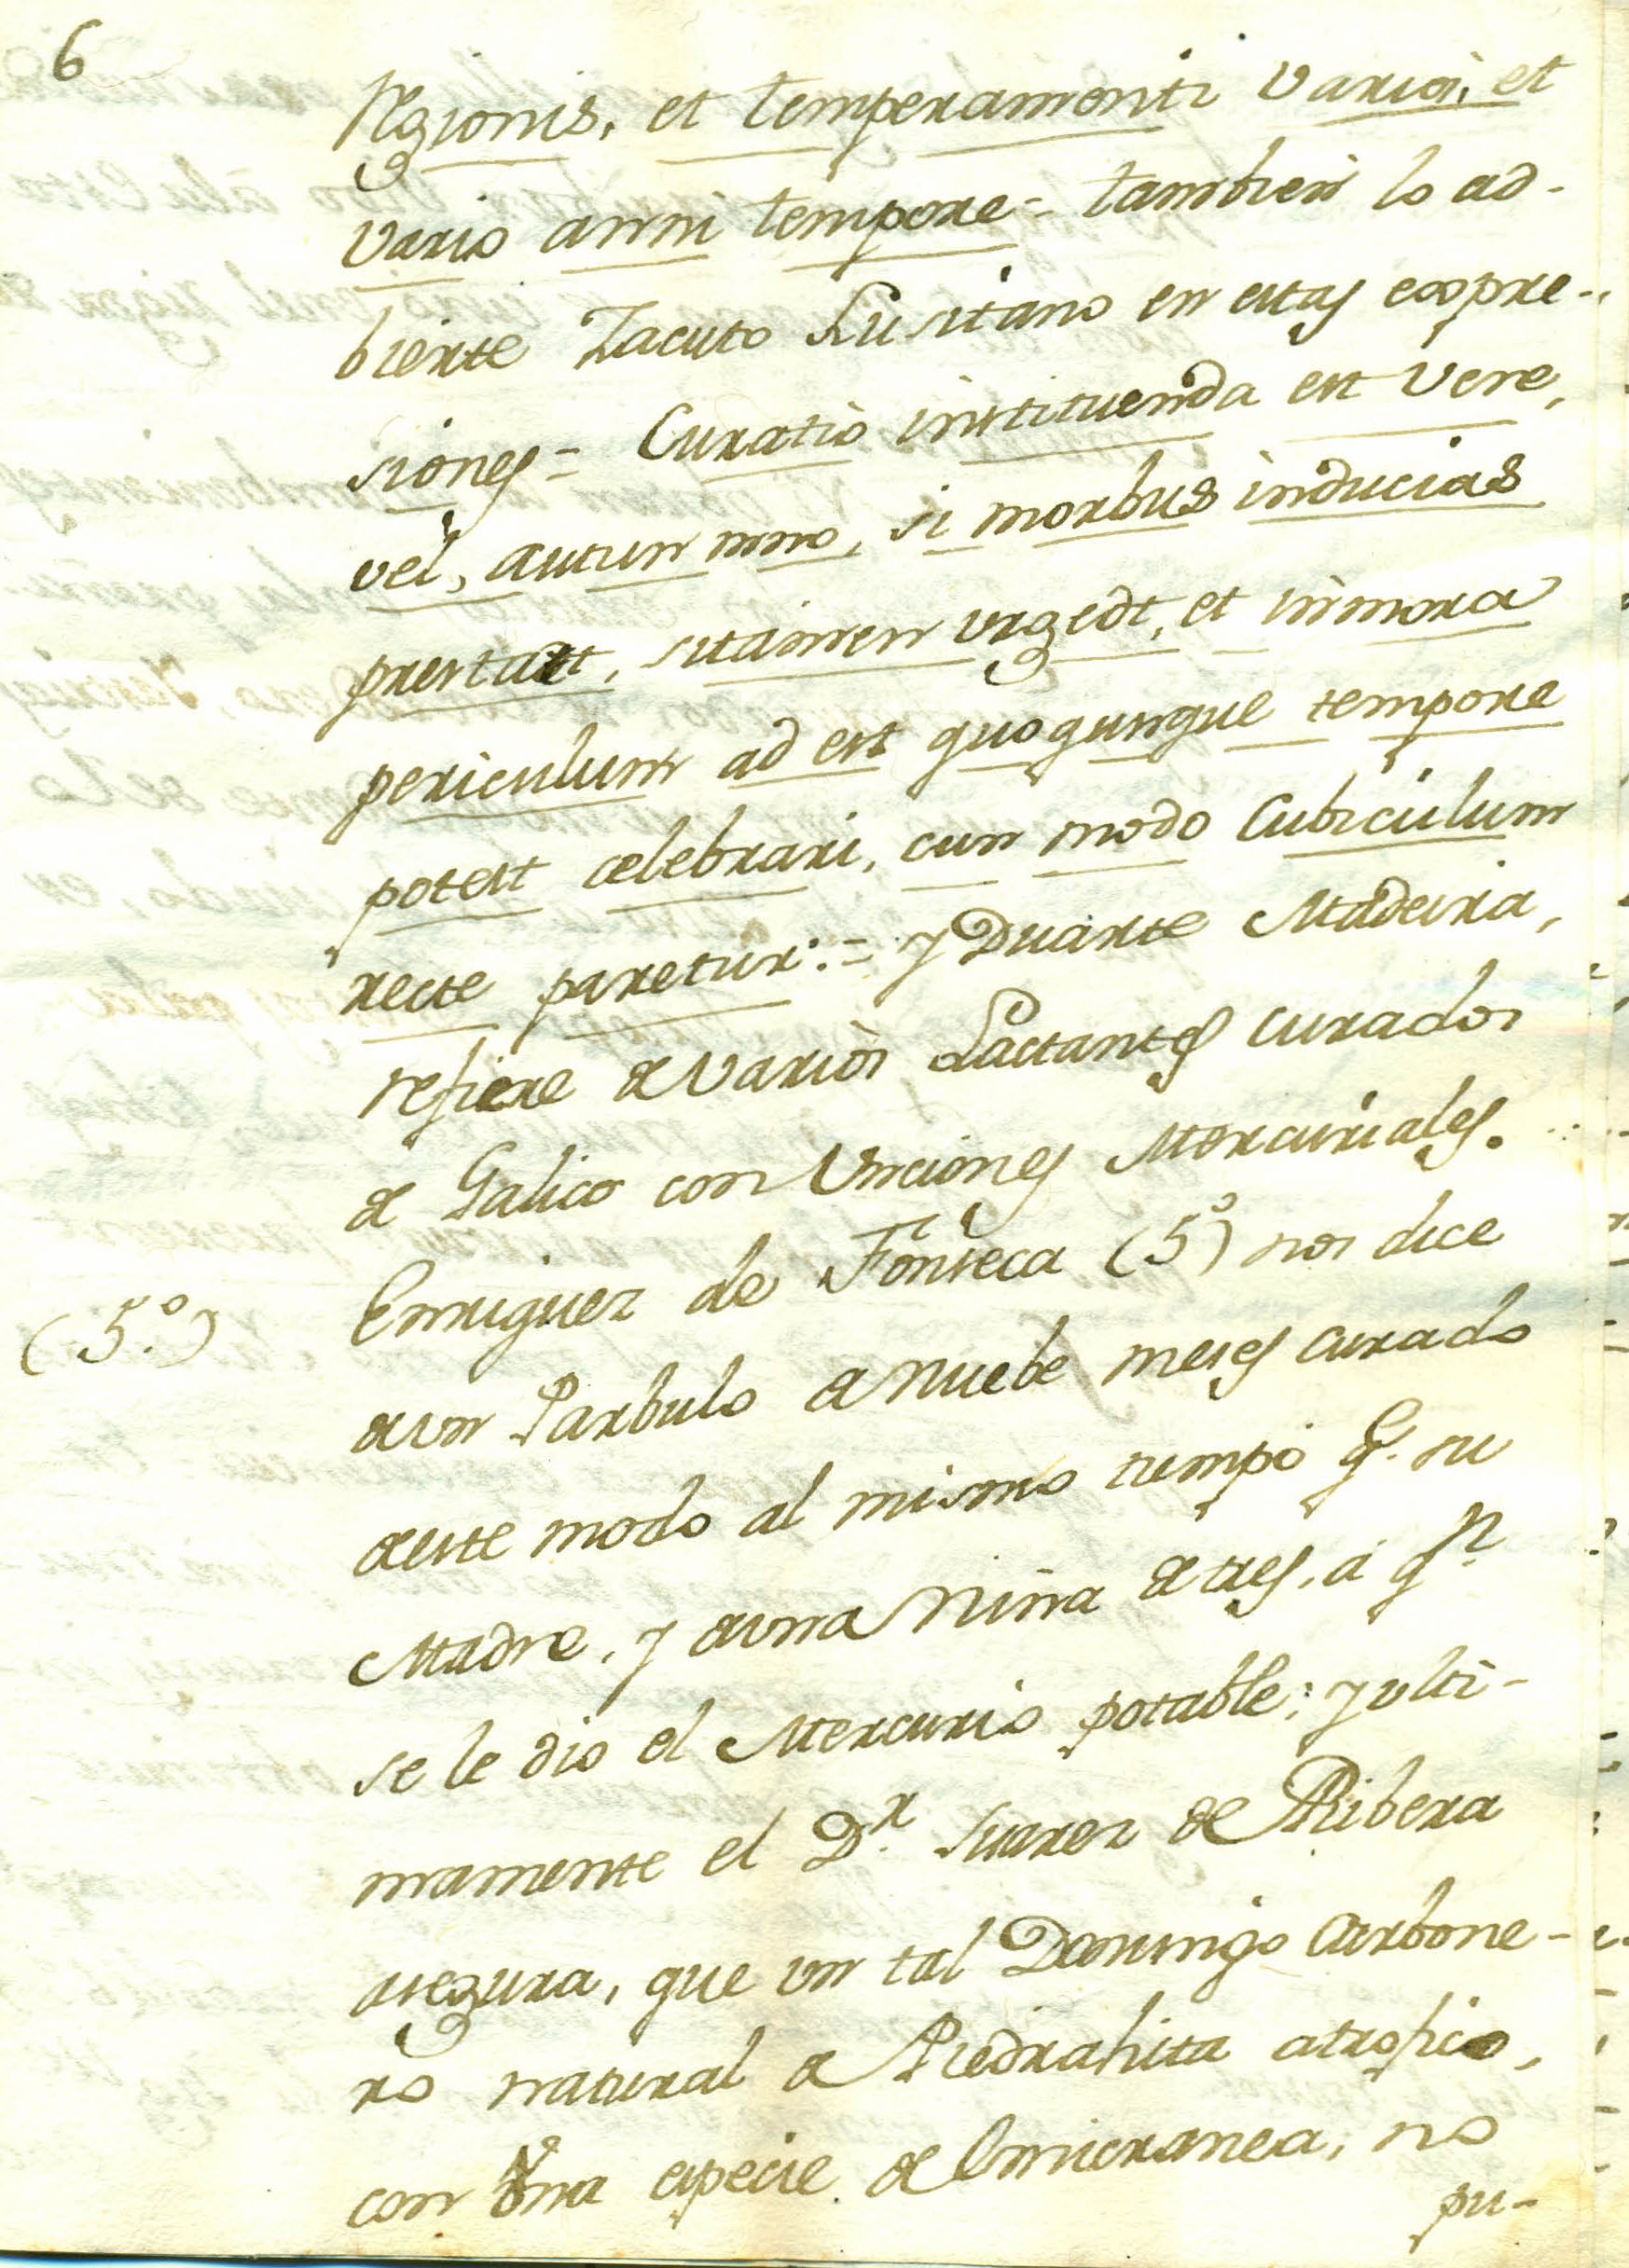 6
Regionis, et temperamenti varioi, et
vario anni tempore = tambien lo ad-
bierte Zacuto Lusitano en estas expre-
siones = Curatio instituenda est vere,
vel, autunmno, si morbus inducias
prestaet, sitamen urgedt, et inmora
periculum ad est quoqunque tempore
potest celebrari, cun modo Cubiculum
recte paretur: = y Duarte Madeira,
refiere de varios Lactantes curados
de Galico con Unciones Mercuriales.
Enriquez de Fonseca (5º) nos dice
(5.º)
de un Parbulo de nuebe meses curado
de este modo al mismo tiempo q.e su
Madre, y de una Niña de tres, á q.n
se le dio el Mercurio potable; y ulti-
mamente el D.r Suarez de Ribera
asegura, que un tal Domingo Carbone-
ro natural de Piedrahita atrofico,
con una especie de Emicranea, no
pu-